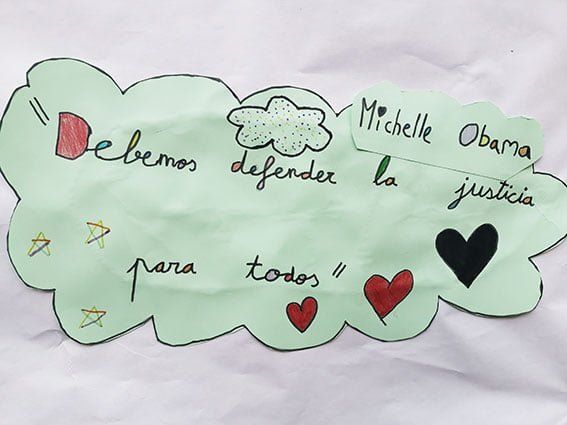 Michelle Obama
"Debemos defender la justicia
para todos"